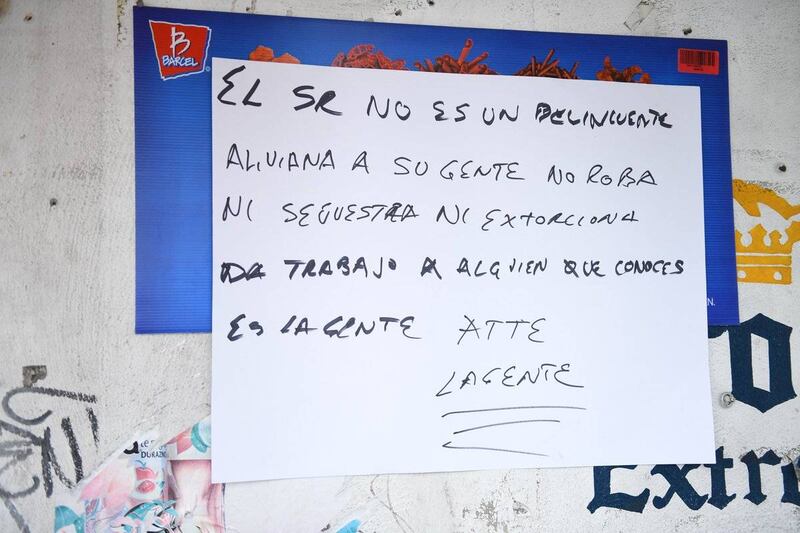 B
BARCEL
EL SR NO ES UN DELINCUENTE
ALIVIANA A SU GENTE NO ROBA
NI SECUESTRA NI EXTORCIONA
DA TRABAJO A ALGUIEN QUE CONOCES
ES LA GENTE ATTE
LA GENTE
N.
DURAZNO
Extr